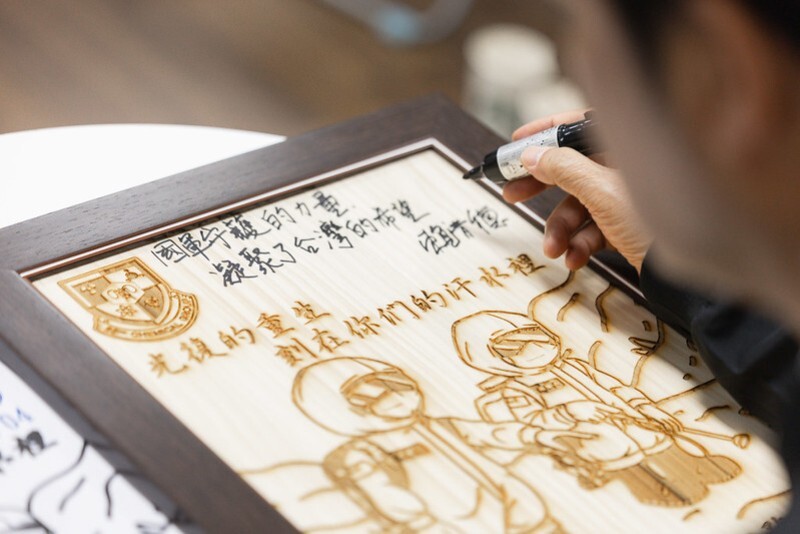 國軍守護的力量
凝聚了台灣的希望
光復的重生
刻在你們的汗水裡
CHEMICAL
04
水裡